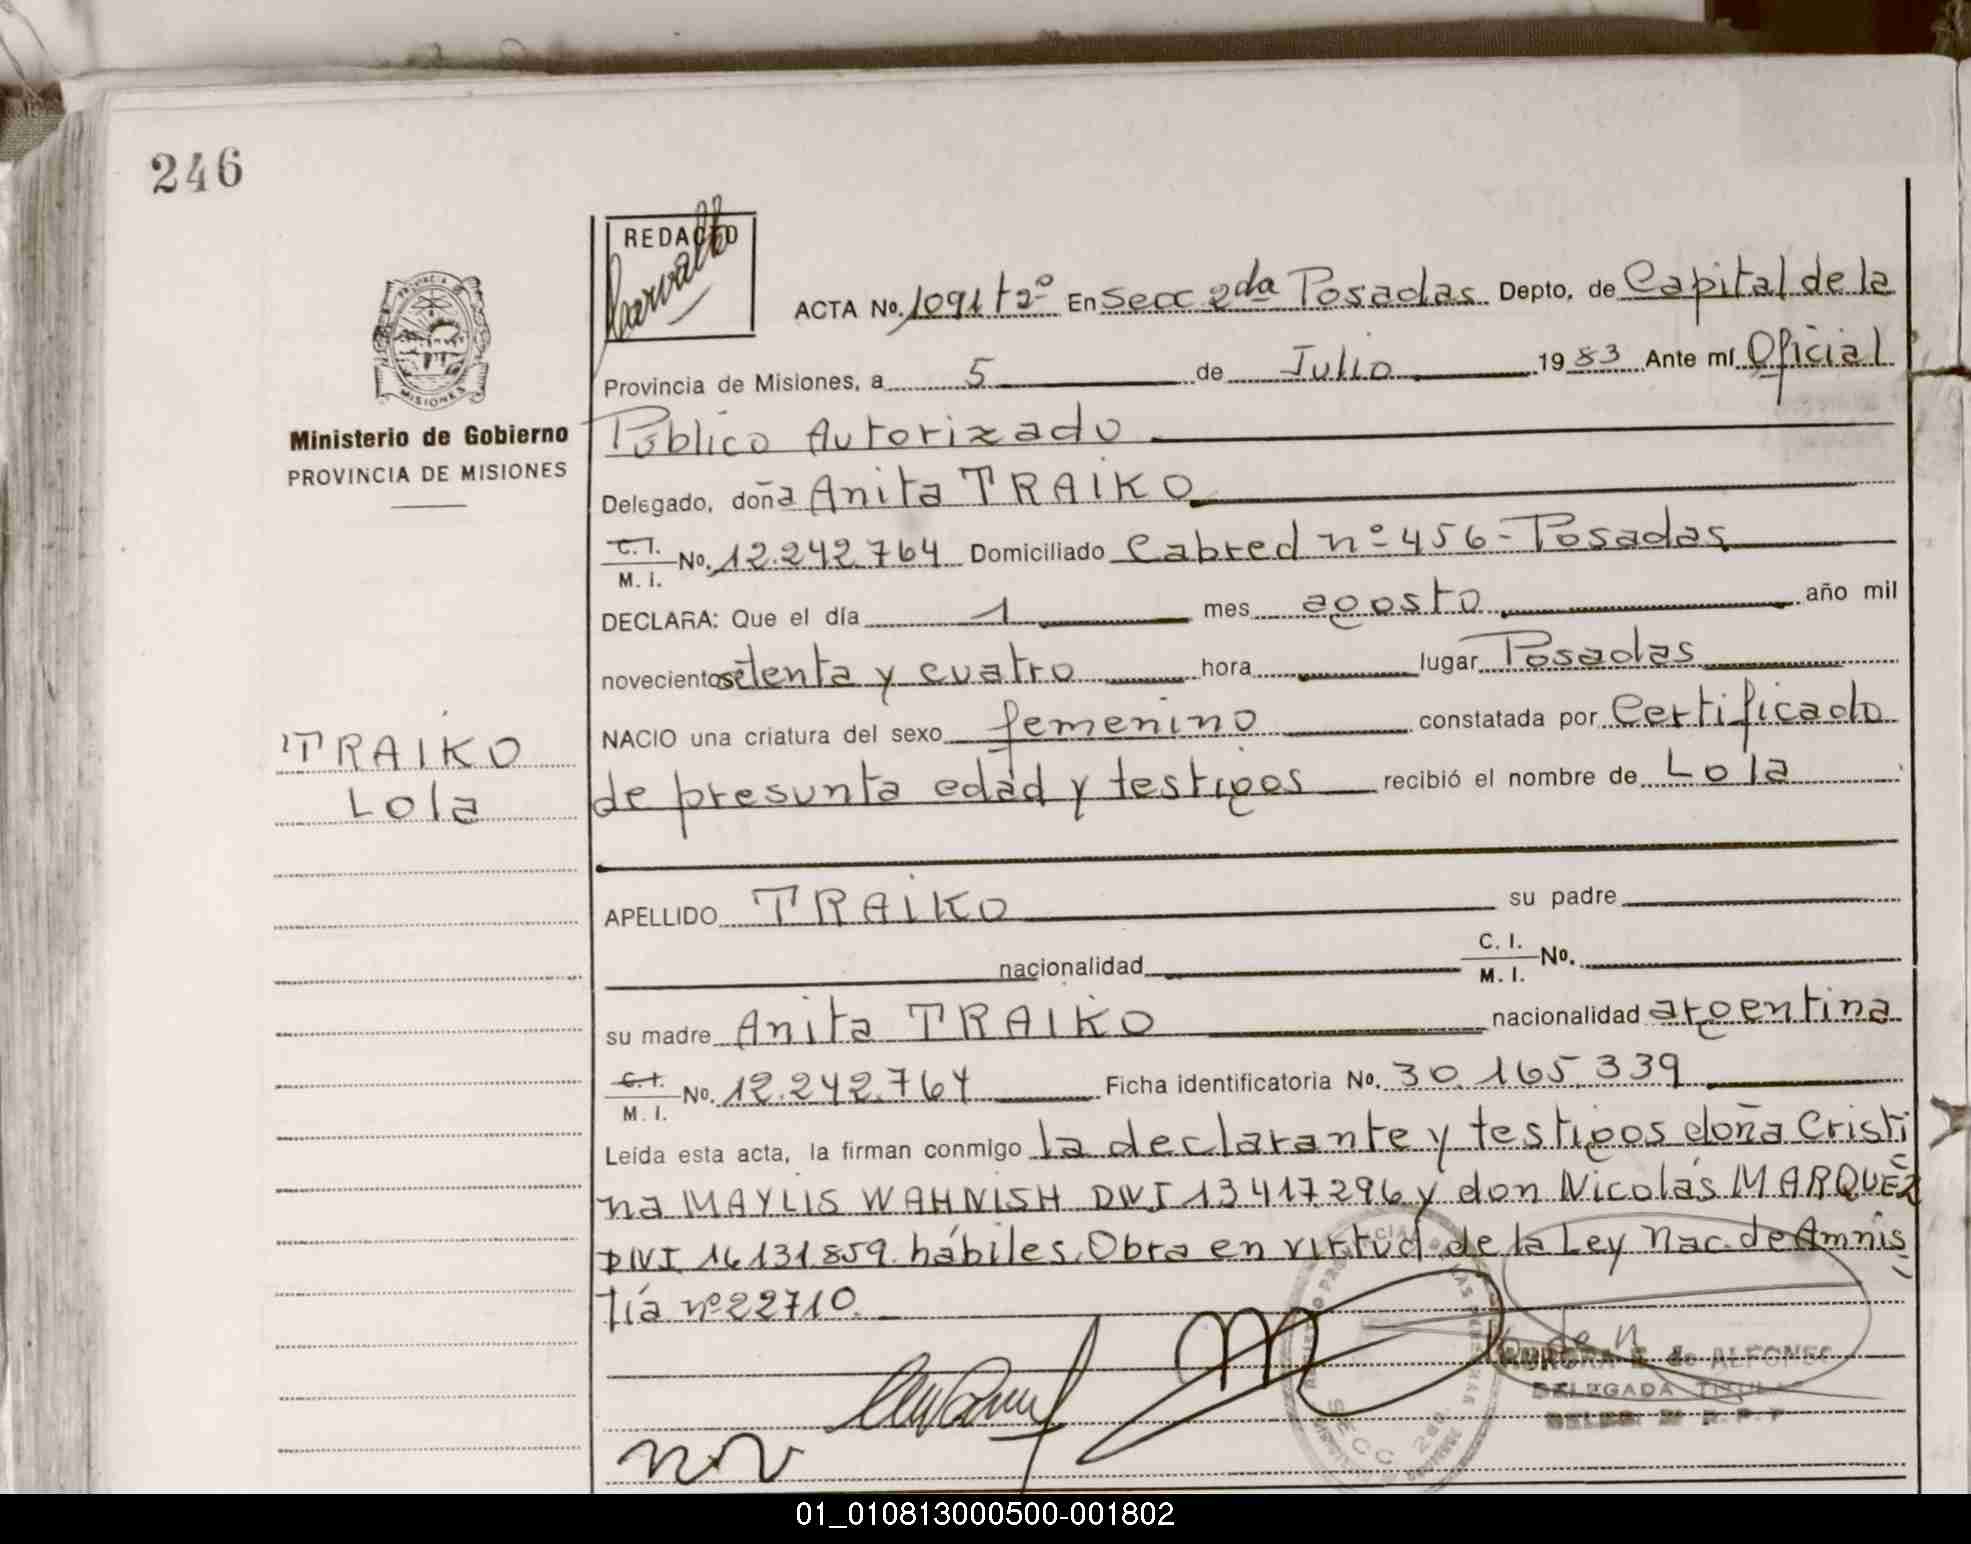 246
REDACTO
Carvallo
ACTA No. 1091 tº2º En Secc 2da Posadas Depto. de Capital de la
Provincia de Misiones, a 5 de Julio 1983 Ante mí Oficial
Público Autorizado
Ministerio de Gobierno
PROVINCIA DE MISIONES
Delegado, doña Anita TRAIKO
C. I. M. I. No. 12.242.764 Domiciliado Cabred nº 456 - Posadas
DECLARA: Que el día 1 mes agosto año mil
novecientos setenta y cuatro hora lugar Posadas
NACIO una criatura del sexo femenino constatada por Certificado
de presunta edad y testigos recibió el nombre de Lola
TRAIKO
Lola
APELLIDO TRAIKO su padre
nacionalidad C. I. M. I. No.
su madre Anita TRAIKO nacionalidad argentina
C. I. M. I. No. 12.242.764 Ficha identificatoria No. 30.165.339
Leída esta acta, la firman conmigo la declarante y testigos doña Cristi
na MAYLIS WAHNISH DNI 13417296 y don Nicolás MARQUEZ
DNI 16131859 hábiles. Obra en virtud de la Ley Nac. de Amnis
tía nº 22710.
AURORA E. de ALFONSO
DELEGADA TITULAR
SECC 2da.
01_010813000500-001802